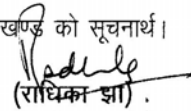 खण्ड को सूचनार्थ।
(राधिका झा) .